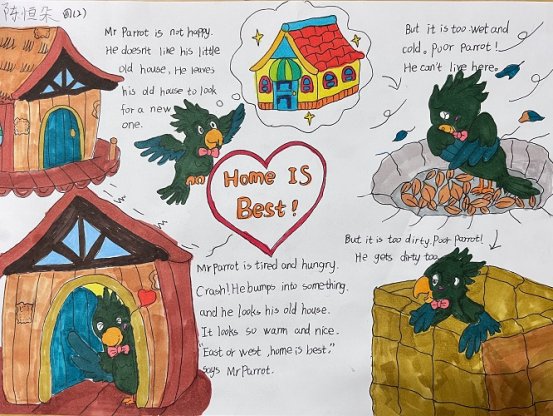 陈恒朵 四(2)
Mr Parrot is not happy.
He doesn't like his little
old house. He leaves
his old house to look
for a new
one.
But it is too wet and
cold. Poor Parrot!
He can't live here.
Home IS
Best!
But it is too dirty. Poor Parrot!
He gets dirty too.
Mr Parrot is tired and hungry.
Crash! He bumps into something.
and he looks his old house.
It looks so warm and nice.
"East or west, home is best,"
says Mr Parrot.